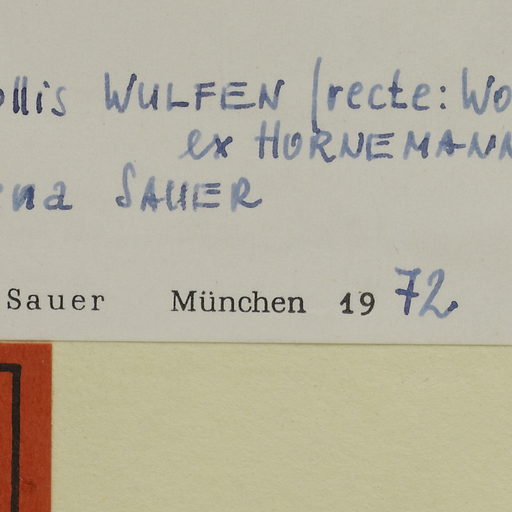 ollis WULFEN (recte: Wo
ex HORNEMANN
ena SAUER
Sauer München 1972